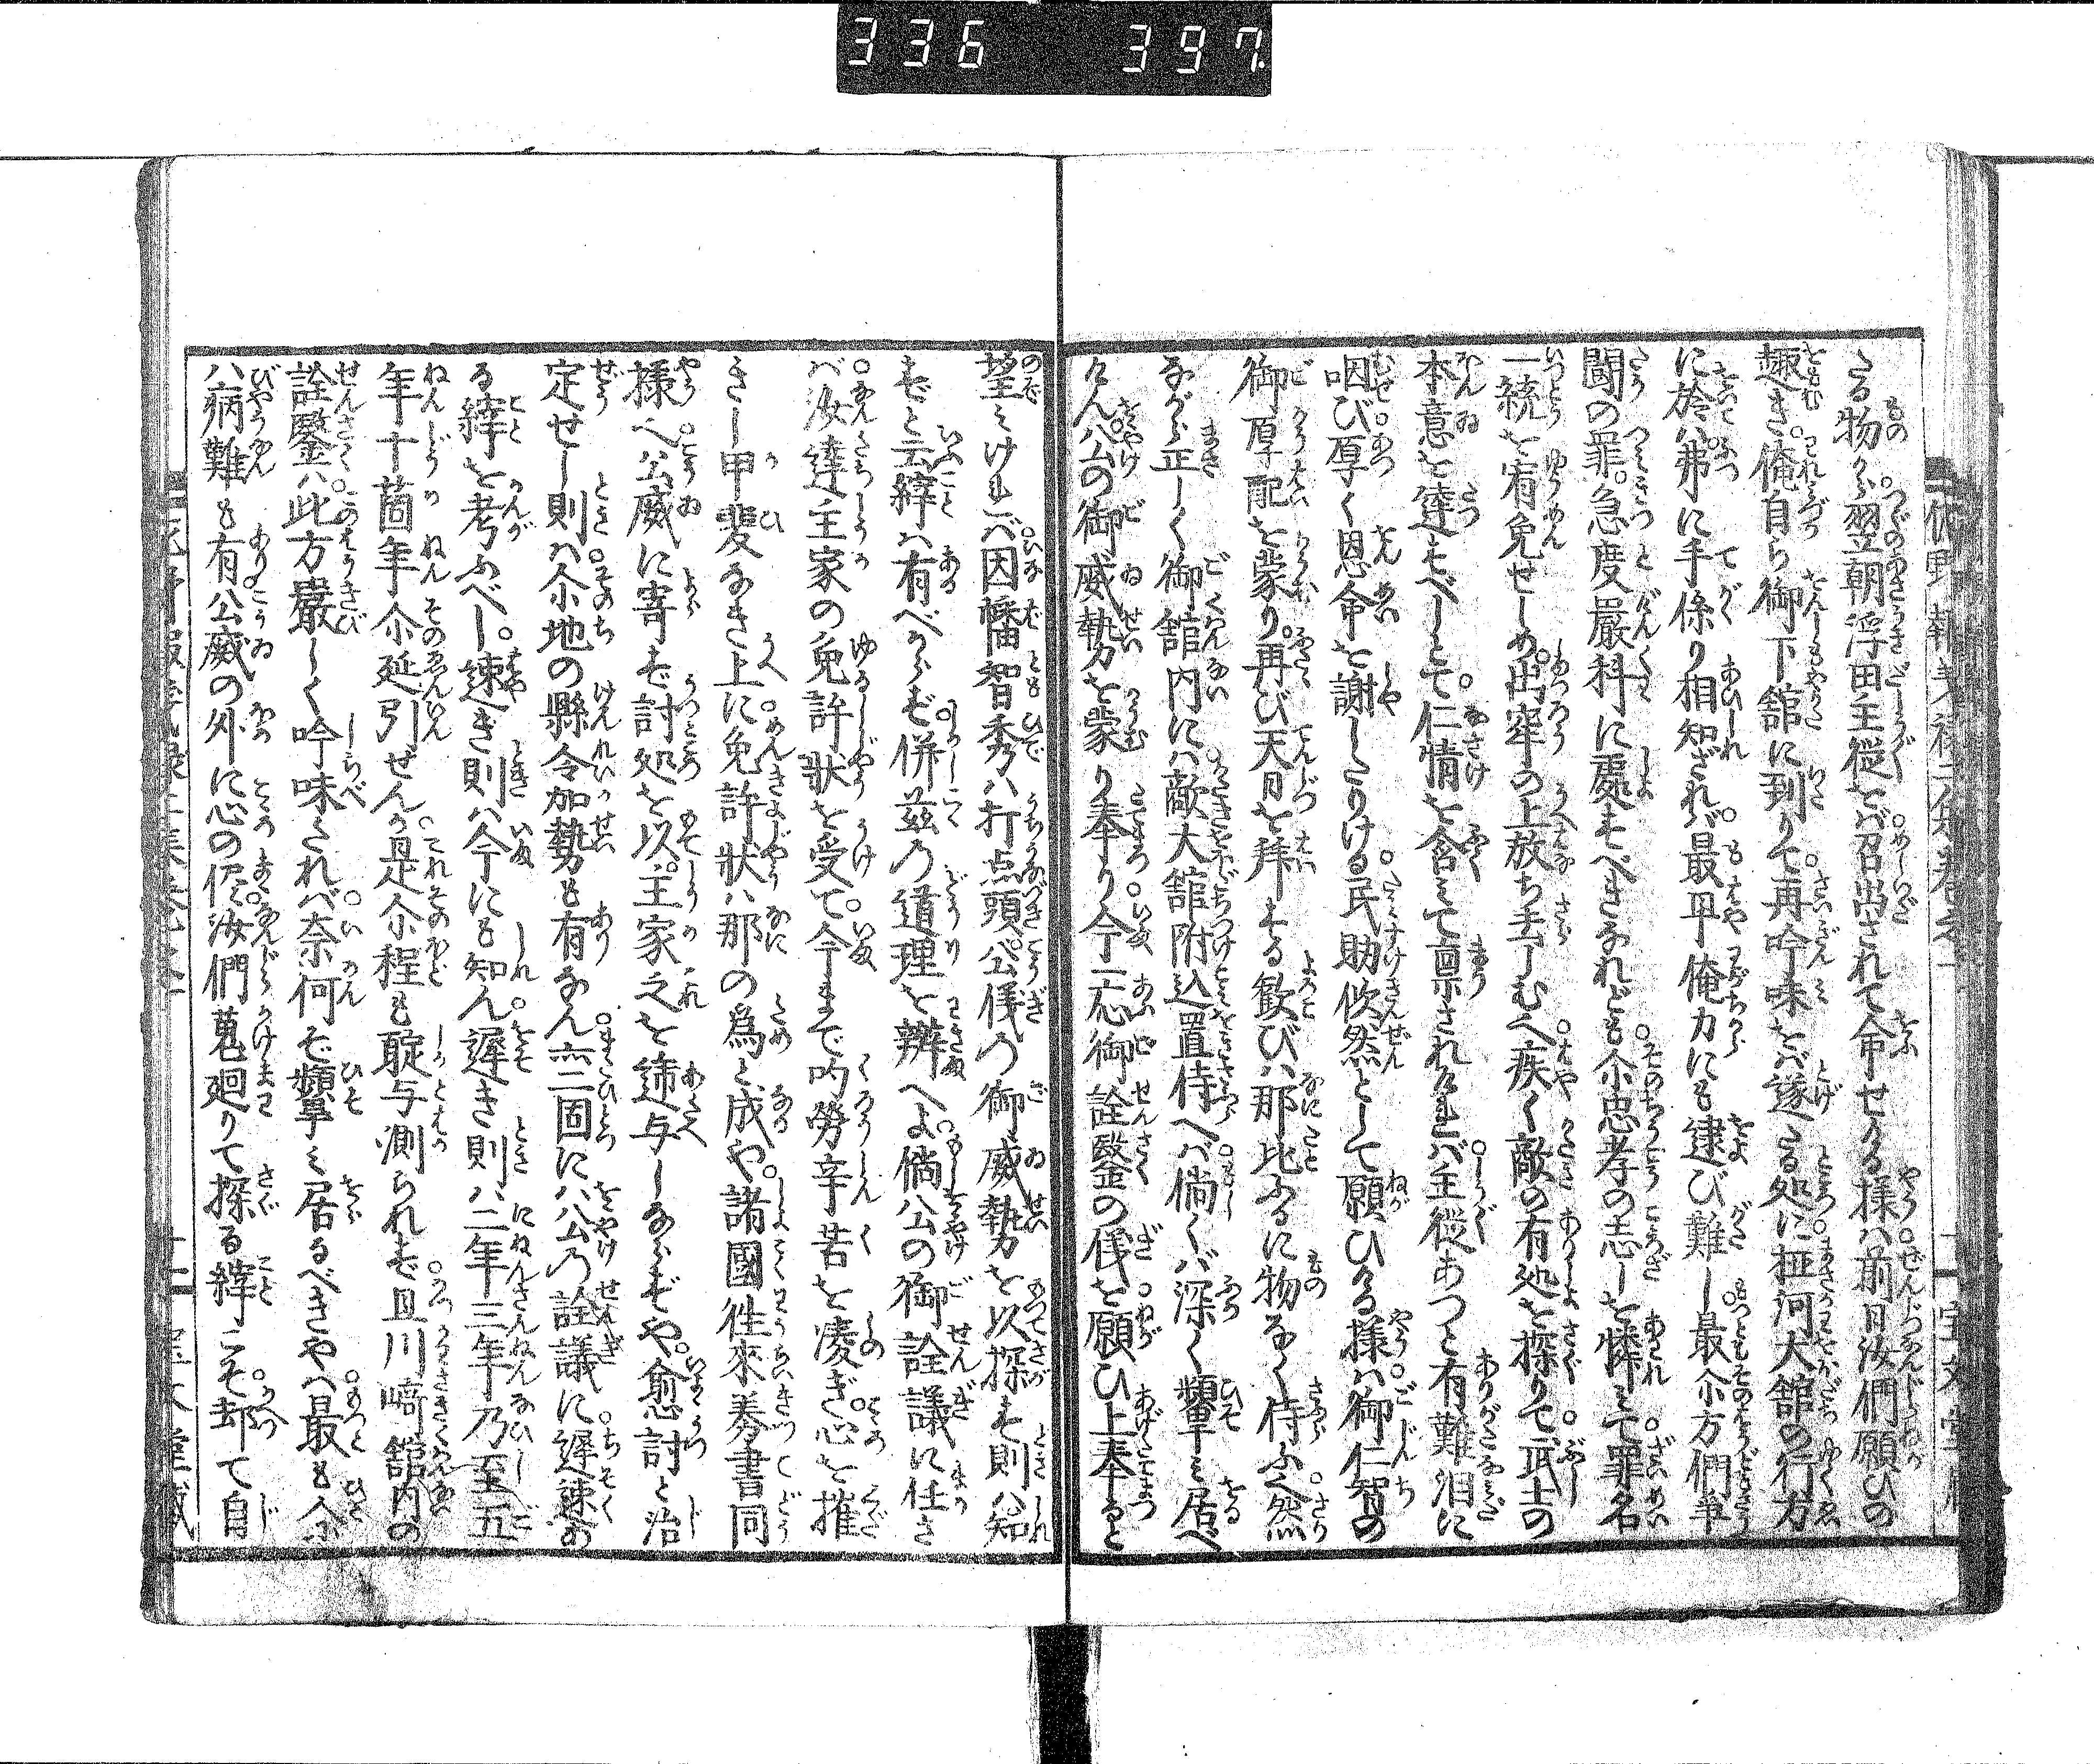 336 397
さる物から翌朝浮田主從をバ召出されて命せける様ハ前日汝們願ひの
趣き俺自ら御下舘に到りて再吟味をバ遂る処に柾河大舘の行方
に於ハ弗に手係り相知ざれバ最早俺力にも逮び難し最尒方們爭
鬪の罪急度嚴科に處すべきなれども尒忠孝の志しを憐ミて罪名
一統を宥免せしめ出牢の上放ち去しむヘ疾く敵の有処を探りて武士の
本意を達すべしとて仁情を含ミて稟されけれバ主從あつと有難泪に
咽び厚く恩命を謝したりける民助佽然として願ひける様ハ御仁智の
御厚配を蒙り再び天日を拜しする歓びハ那比ふるに物なく侍ふ然
ながら正しく御舘内にハ敵大舘附込置侍へバ倘くバ深く顰ミ居べ
けんハ公の御威勢を蒙り奉り今一応御詮鑿の儀を願ひ上奉ると
望ミけれバ因幡智秀ハ打点頭公儀の御威勢を以探す則ハ知
ずと云縡ハ有べからず併茲の道理を辨へよ倘公の御詮議に任さ
バ汝達主家の免許狀を受て今まで的勞辛苦を凌ぎ心を摧
きし甲斐なき上に免許狀ハ那の爲と成や諸國徃來券書同
様ヘ公威に寄ず討処を以主家之を遆与しならずや愈討と治
定せし則ハ尒地の縣令加勢も有なん亦一固にハ公の詮議に遲速あ
る縡を考ふべし速き則ハ今にも知ん遲き則ハ二年三年乃至五
年十箇年尒延引せんか是尒程も聢与測られず且川﨑舘内の
詮鑿ハ此方嚴しく吟味されバ奈何ぞ顰ミ居るべきやハ最も入交
ハ病難も有公威の外に心の侭汝們蒐廻りて探る縡こそ却て自